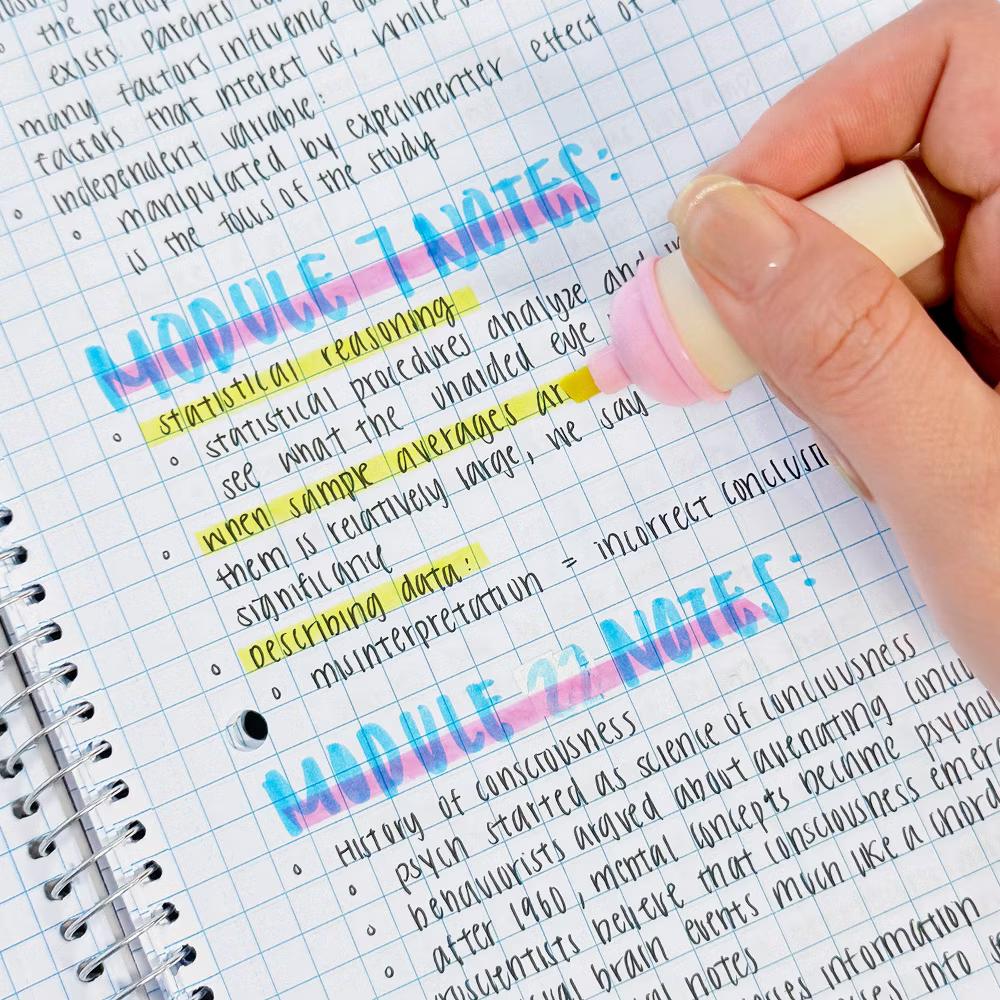 the percep
exists. Parents c
many factors influence
factors that interest us, while
independent variable:
manipulated by experimenter effect of
is the focus of the study
MODULE 7 NOTES:
statistical reasoning
statistical procedures analyze and
see what the unaided eye
when sample averages ar
them is relatively large, we say
significance
Describing data:
misinterpretation = incorrect conclusi
MODULE 22 NOTES:
History of consciousness
psych started as science of conciousness
behaviorists argued about alienating conci
after 1960, mental concepts became psycho
roscientists believe that consciousness emer
brain events much like a chord
notes
information
info